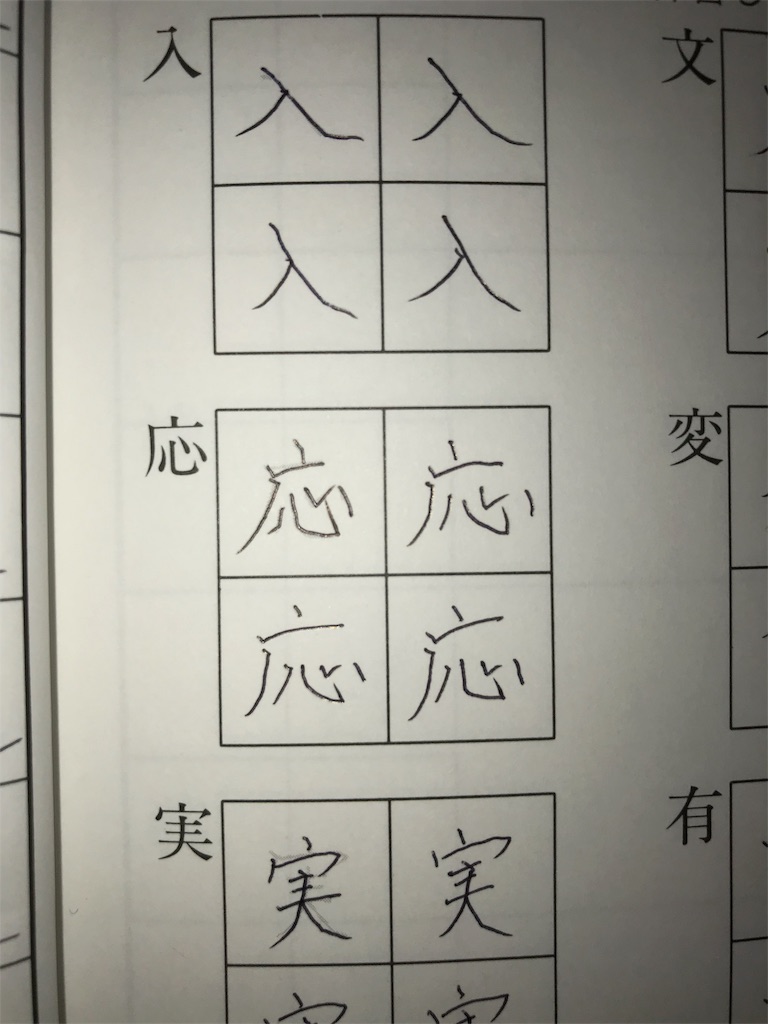 入 入 入
入 入
応 応 応
応 応
実 実 実
文
変
有